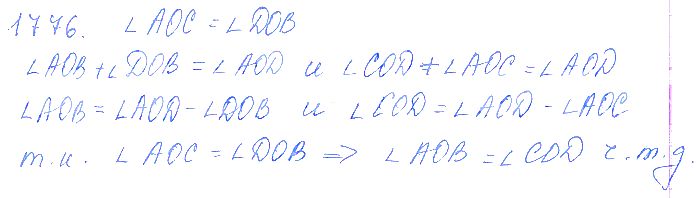 1776. ∠AOC = ∠DOB
∠AOB + ∠DOB = ∠AOD и ∠COD + ∠AOC = ∠AOD
∠AOB = ∠AOD - ∠DOB и ∠COD = ∠AOD - ∠AOC
т.к. ∠AOC = ∠DOB => ∠AOB = ∠COD ч.т.д.